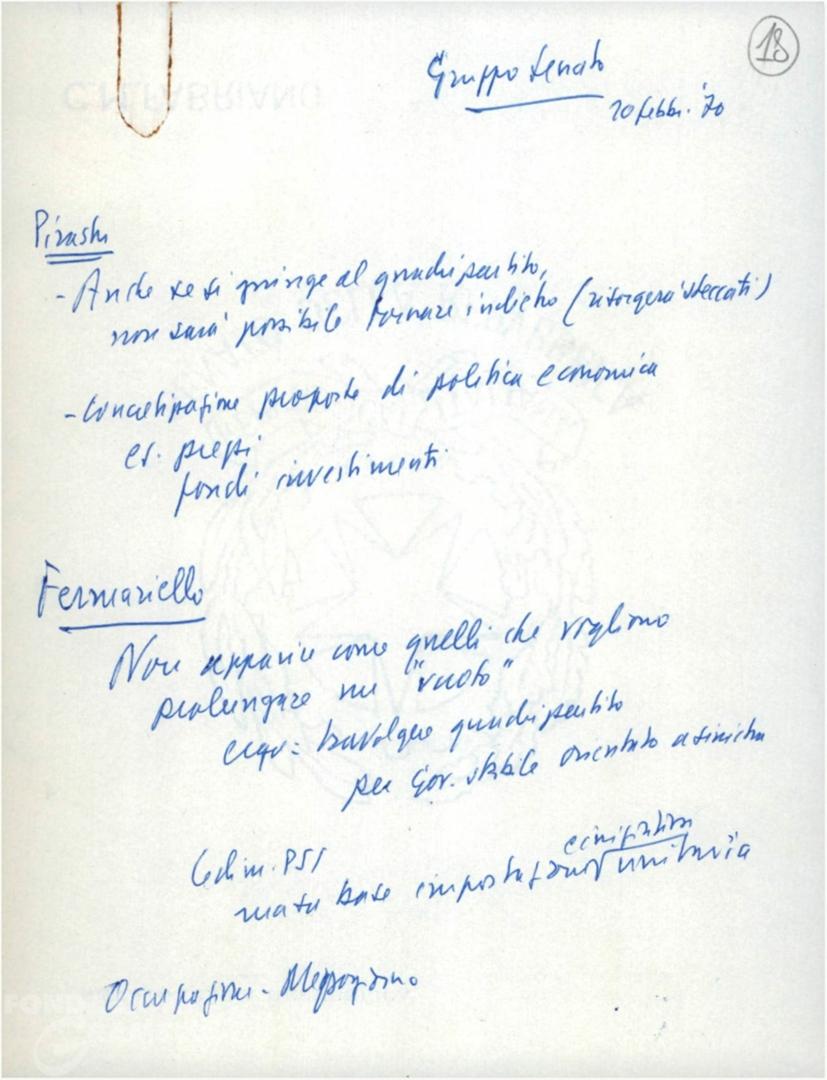 18
Gruppo Senato
20 febbr. '70
Pirastu
- Anche se si giunge al quadripartito,
non sarà possibile tornare indietro (risorgerà steccati)
- Concretizzazione proposte di politica economica
es. prezzi
fondi investimenti
Fermariello
Non apparire come quelli che vogliono
prolungare un "vuoto"
cioè: travolgere quadripartito
per Gov. stabile orientato a sinistra
Cedim. PSI
ma su base impostazione unitaria
Occupazione - Mezzogiorno
C.M. FABRIANO
FOND